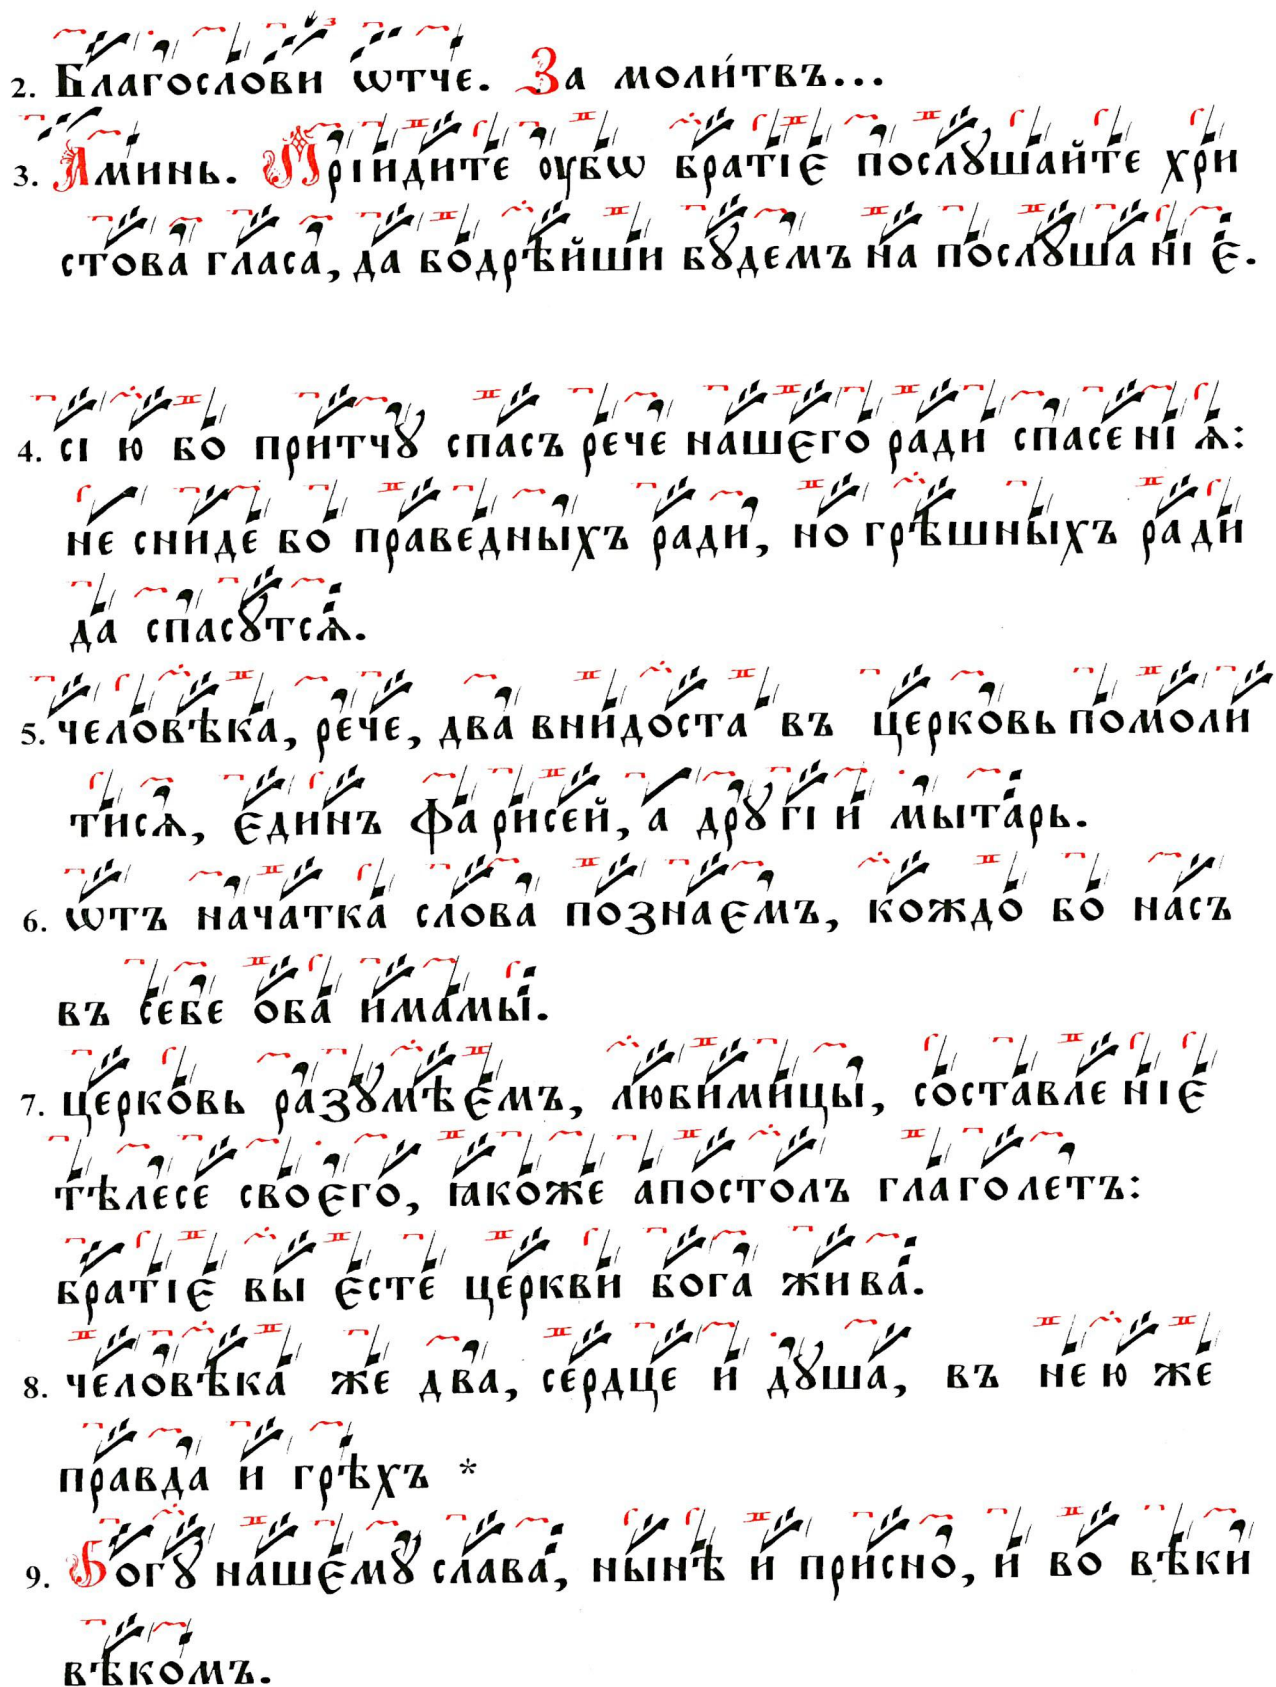 2. Благослови ѡтче. За моли́твъ...
3. Аминь. Прїидите ѹбѡ братїє послꙋшайте хри
стова гласа, да бодрѣйши бꙋдемъ на послꙋша нї є.
4. сї ю бо притчꙋ спасъ рече нашєго ради спасе нї ѧ:
не сниде бо праведныхъ ради, но грѣшныхъ ра ди
да спасꙋтсѧ.
5. человѣка, рече, два внидоста въ церковь помоли
тисѧ, єдинъ фа рисей, а дрꙋ гї и мытарь.
6. ѡтъ начатка слова познаємъ, кождо бо насъ
въ себе оба имамы.
7. церковь разꙋмѣємъ, любимицы, составле нїє
тѣлесе своєго, ꙗкоже апостолъ глаголетъ:
братїє вы єсте церкви бога жива.
8. человѣка же два, сердце и дꙋша, въ не ю же
правда и грѣхъ *
9. Богꙋ нашємꙋ слава, нынѣ и присно, и во вѣки
вѣкомъ.